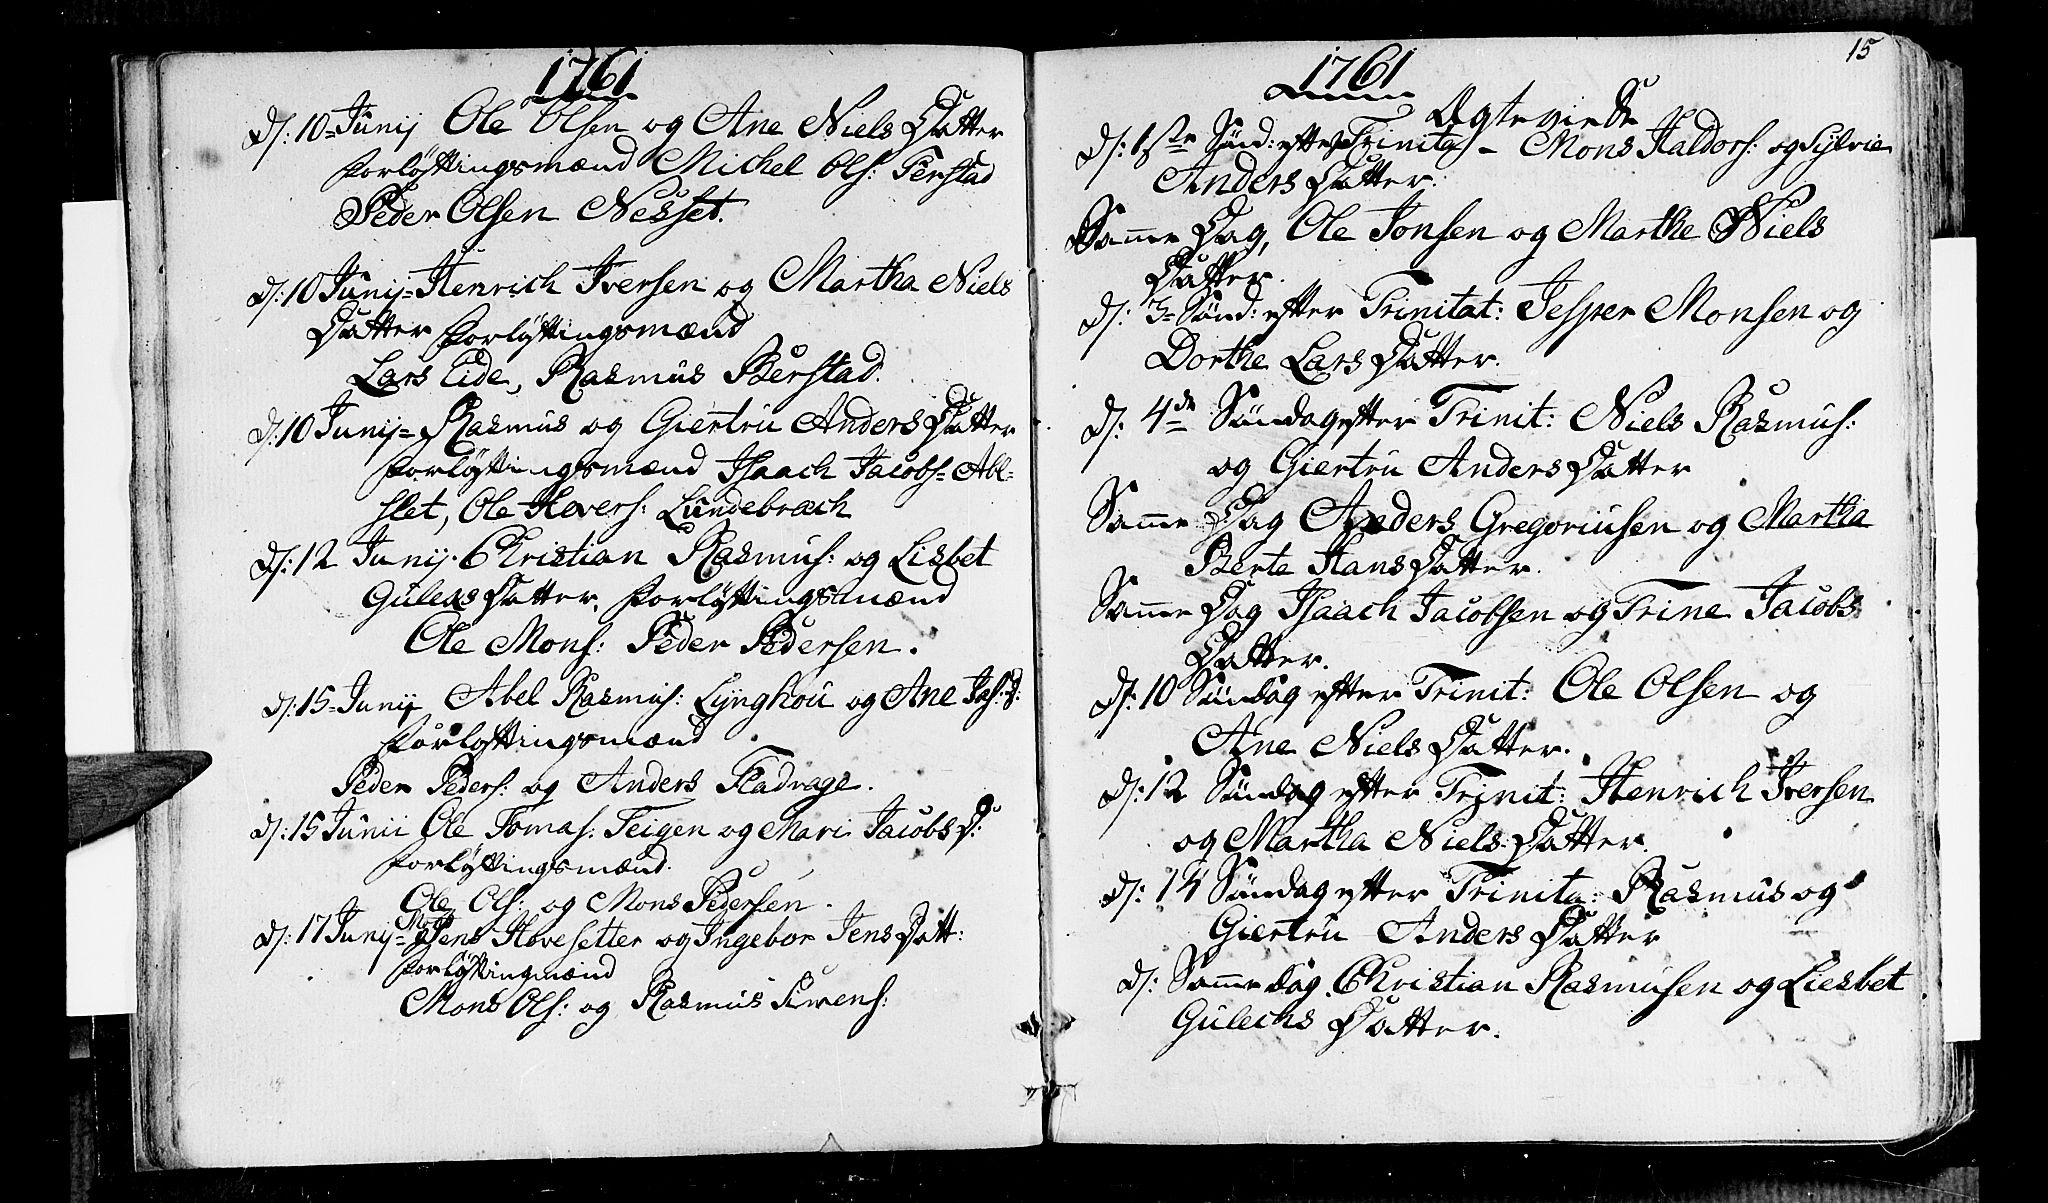 1761
d: 10= Junij Ole Olsen og Ane Niels Datter
forløftingsmænd Michel Ols: Ferstad
Peder Olsen Nesset.
d: 10 Junij= Henrich Iversen og Martha Niels
Datter forløftingsmænd
Lars Eide, Rasmus Berstad.
d: 10 Junij= Rasmus og Giertru Anders Datter
forløftingsmænd Isaach Jacobs= Abl=
slet, Ole Hovers: Lundebræch
d: 12 Junij. Christian Rasmus: og Lisbet
Gulens Datter, forløftingsmænd
Ole Mons: Peder Pedersen.
d: 15= Junij Abel Rasmus: Lijnghou og Ane Jas: D:
forløftingsmænd
Peder Peders: og Anders Fladrage.
d: 15 Junii Ole Tomas: Teigen og Mari Jacobs D:
forløftingsmænd.
Ole Ols: og Mons Pedersen.
d: 17 Junij= Jens Hovesetter og Ingebor Jens Datt:
forløftingmænd
Mons Ols: og Rasmus Siwens:
15
1761
Ægteviede
d: 1ste Sünd: efter Trinita, - Mons Haldors: og Sylvie
Anders Datter.
Samme Dag, Ole Jonsen og Marthe Niels
Datter.
d: 3= Sünd: efter Trinitat: Jesper Monsen og
Dorthe Lars Datter.
d: 4de Sündag efter Trinit: Niels Rasmus:
og Giertru Anders Datter
Samme Dag Anders Gregoriusen og Martha
Berte Hans Datter.
Samme Dag Isaach Jacobsen og Trine Jacobs
Datter.
d: 10 Sündag efter Trinit: Ole Olsen og
Ane Niels Datter.
d: 12 Sündag efter Trinit: Henrich Iversen
og Martha Niels Datter.
d: 14 Sündag efter Trinita: Rasmus og
Giertru Anders Datter
d: Samme dag Christian Rasmusen og Liesbet
Gulechs Datter.